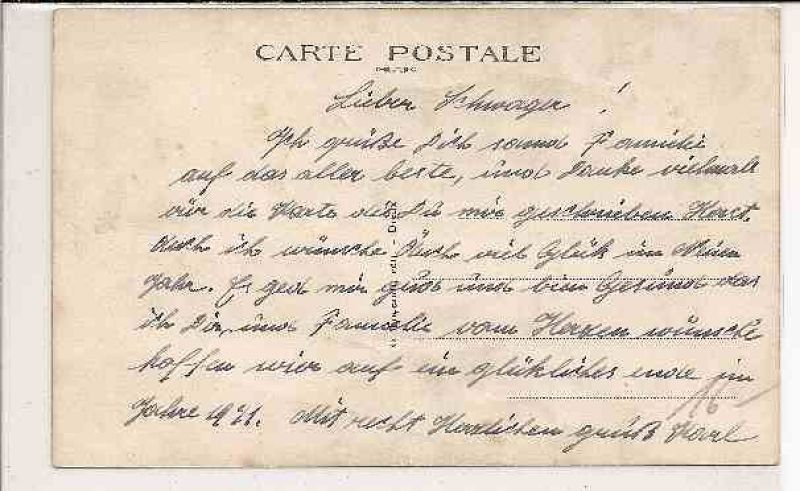 CARTE POSTALE
Lieber Schwager!
Ich grüße Dich samd Familie
auf das aller beste, und Danke vielmals
vür die Karte die Du mir geschrieben Hast.
Auch ich wünsche Euch viel Glük im Neuen
Jahr. Es ged mir gud und bin Gesund das
ich Dir und Familie vom Herzen wünsche
hoffen wier auf ein glükliches ende im
Jahre 1921. Mit recht Herzlichen gruß Karl